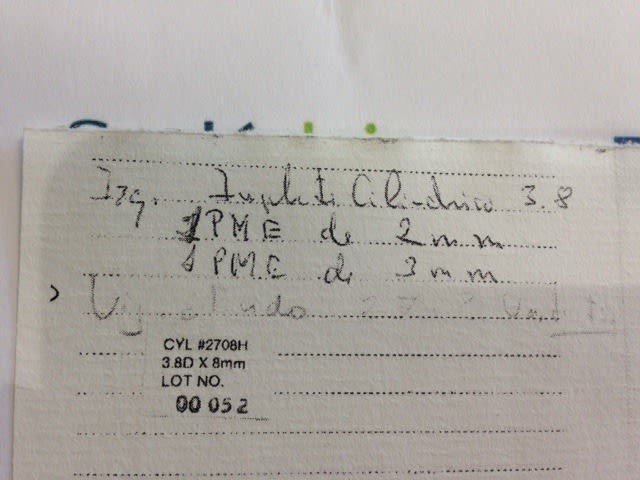 Izq. Implante Cilindrico 3.8
1 PME de 2 mm
1 PME de 3 mm
CYL #2708H
3.8D X 8mm
LOT NO.
00 052